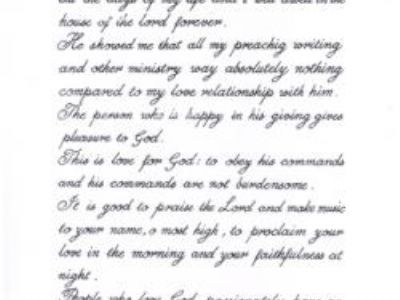 all the days of my life and I will dwell in the
house of the lord forever.
He showed me that all my preachig writing
and other ministry way absolutely nothing
compared to my love relationship with him.
The person who is happy in his giving gives
pleasure to God.
This is love for God: to obey his commands
and his commands are not burdensome.
It is good to praise the Lord and make music
to your name, o most high, to proclaim your
love in the morning and your faithfulness at
night.
People who love God passionately have an